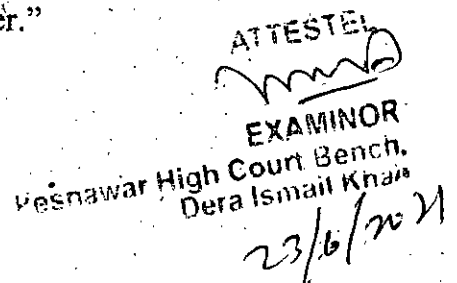 er.”
ATTESTED
EXAMINOR
Peshawar High Court Bench,
Dera Ismail Khan
23/6/2021